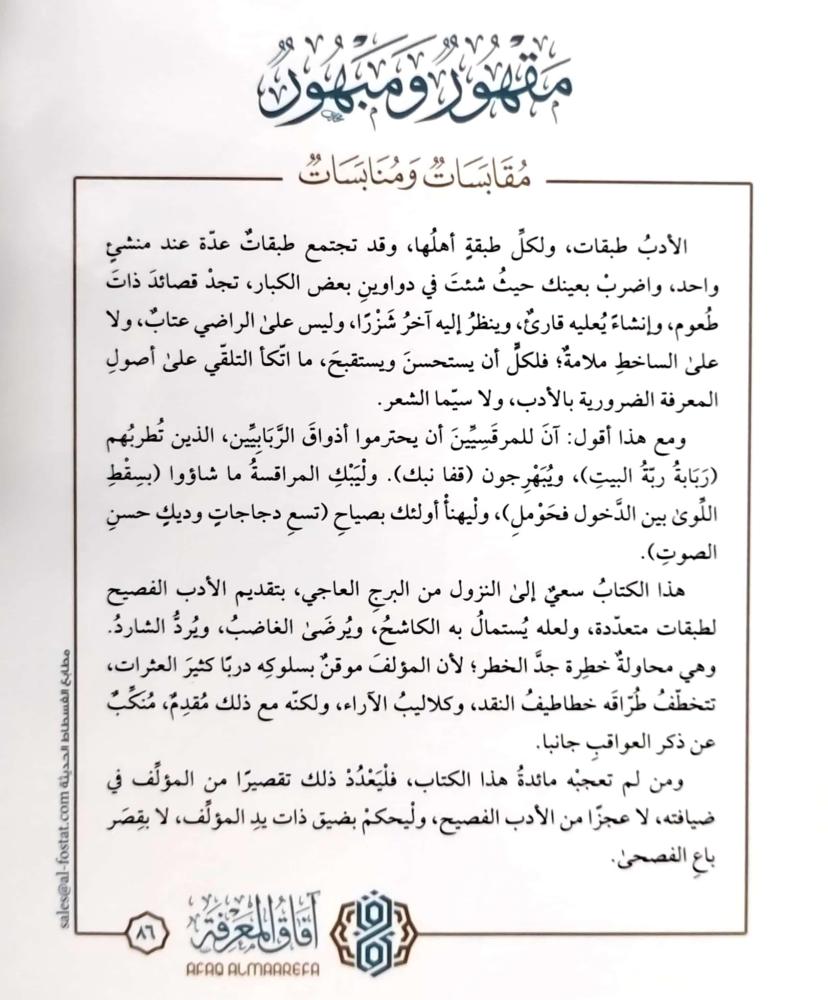 مَقْهُورٌ وَمَبْهُورٌ
مُقَابَسَاتٌ وَمُنَابَسَاتٌ
الأدبُ طبقات، ولكلِّ طبقةٍ أهلُها، وقد تجتمع طبقاتٌ عدّة عند منشئٍ
واحد، واضربْ بعينك حيثُ شئتَ في دواوينِ بعض الكبار، تجدْ قصائدَ ذاتَ
طُعوم، وإنشاءً يُعليه قارئٌ، وينظرُ إليه آخرُ شَزْرًا، وليس على الراضي عتابٌ، ولا
على الساخطِ ملامةٌ؛ فلكلٍّ أن يستحسنَ ويستقبحَ، ما اتّكأ التلقّي على أصولِ
المعرفة الضرورية بالأدب، ولا سيّما الشعر.
ومع هذا أقول: آنَ للمرقَسِيِّينَ أن يحترموا أذواقَ الرَّبَابِيِّين، الذين تُطربُهم
(رَبَابَةُ ربّةُ البيتِ)، ويُبَهْرِجون (قفا نبك). ولْيَبْكِ المراقسةُ ما شاؤوا (بسِقْطِ
اللِّوىٰ بين الدَّخول فحَوْملِ)، ولْيهنأْ أولئك بصياحِ (تسعِ دجاجاتٍ وديكٍ حسنِ
الصوتِ).
هذا الكتابُ سعيٌ إلىٰ النزول من البرجِ العاجي، بتقديم الأدب الفصيح
لطبقات متعدّدة، ولعله يُستمالُ به الكاشحُ، ويُرضَىٰ الغاضبُ، ويُردُّ الشاردُ.
وهي محاولةٌ خطِرة جدَّ الخطر؛ لأن المؤلفَ موقنٌ بسلوكِه دربًا كثيرَ العثرات،
تتخطّفُ طُرّاقَه خطاطيفُ النقد، وكلاليبُ الآراء، ولكنّه مع ذلك مُقدِمٌ، مُنَكِّبٌ
عن ذكر العواقبِ جانبا.
ومن لم تعجبْه مائدةُ هذا الكتاب، فلْيَعْدُدْ ذلك تقصيرًا من المؤلِّف في
ضيافته، لا عجزًا من الأدب الفصيح، ولْيحكمْ بضيق ذات يدِ المؤلِّف، لا بقِصَر
باعِ الفصحىٰ.
آفَاقُ المَعْرِفَة
AFAQ ALMAAREFA
٨٦
sales@al-fostat.com مطابع الفسطاط الحديثة